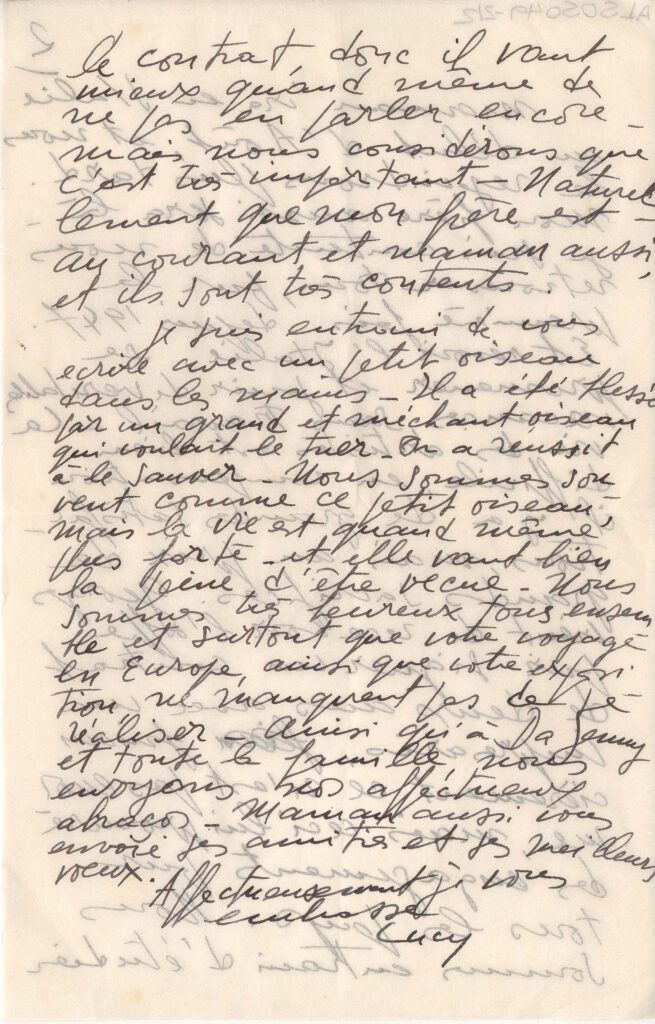 le contrat, donc il vaut
mieux quand même de
ne pas en parler encore -
mais nous considérons que
c'est très important - Naturel
lement que mon frère est -
au courant et maman aussi,
et ils sont très contents.
Je suis entrain de vous
écrire avec un petit oiseau
dans les mains - Il a été blessé
par un grand et méchant oiseau
qui voulait le tuer - On a reussit
à le sauver - Nous sommes sou
vent comme ce petit oiseau,
mais la vie est quand même
plus forte - et elle vaut bien
la peine d'être vecue - Nous
sommes très heureux tous ensem
ble et surtout que votre voyage
en Europe, ainsi que votre exposi
tion, ne manquent pas de se
réaliser - Ainsi qu'à Da Jenny
et toute la famille nous
envoyons nos affectueux
abraços - Maman aussi vous
envoie ses amitiés et ses meilleurs
voeux.
Affectueusement je vous
embrasse
Lucy